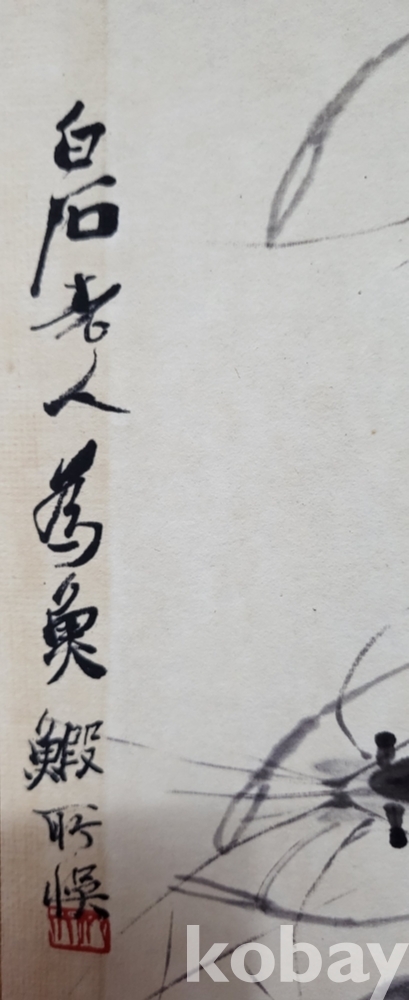 白石老人為魚鰕所悮
kobay